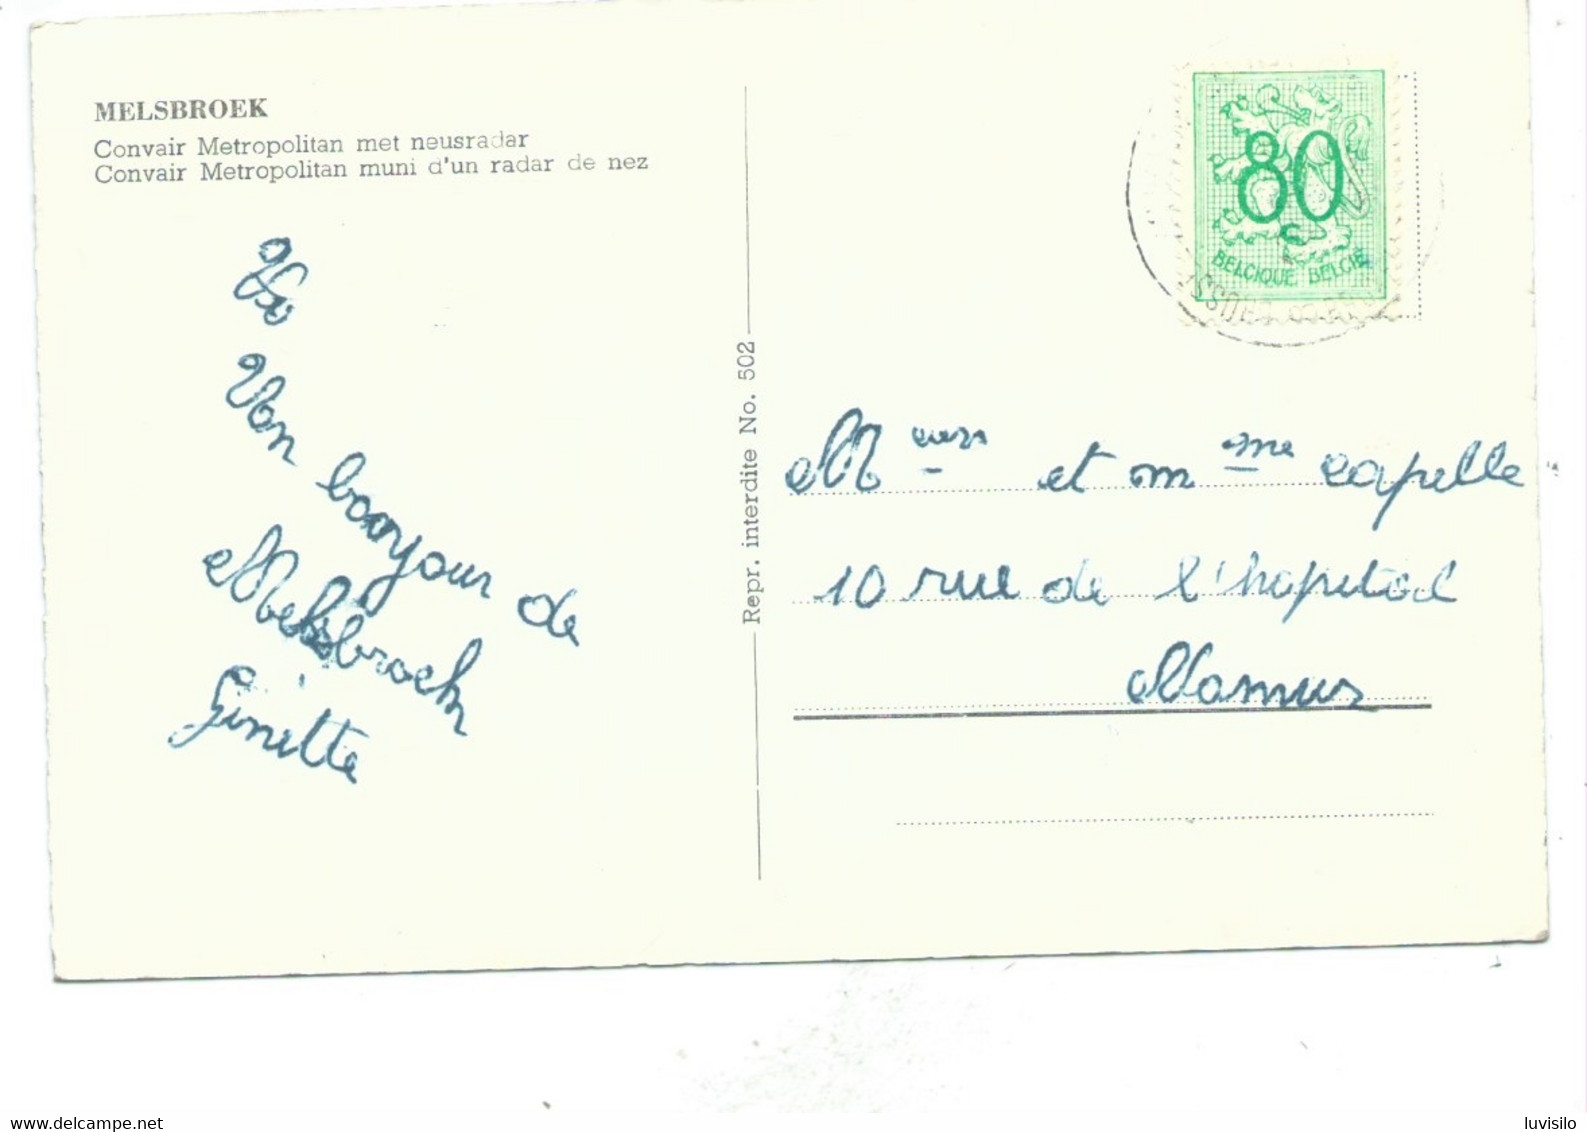 MELSBROEK
Convair Metropolitan met neusradar
Convair Metropolitan muni d'un radar de nez
80
BELGIQUE BELGIË
Repr. interdite No. 502
Un
bonjour de
Melsbroek
Ginette
et Mme Capelle
10 rue de l'hopital
Namur
www.delcampe.net
luvisilo